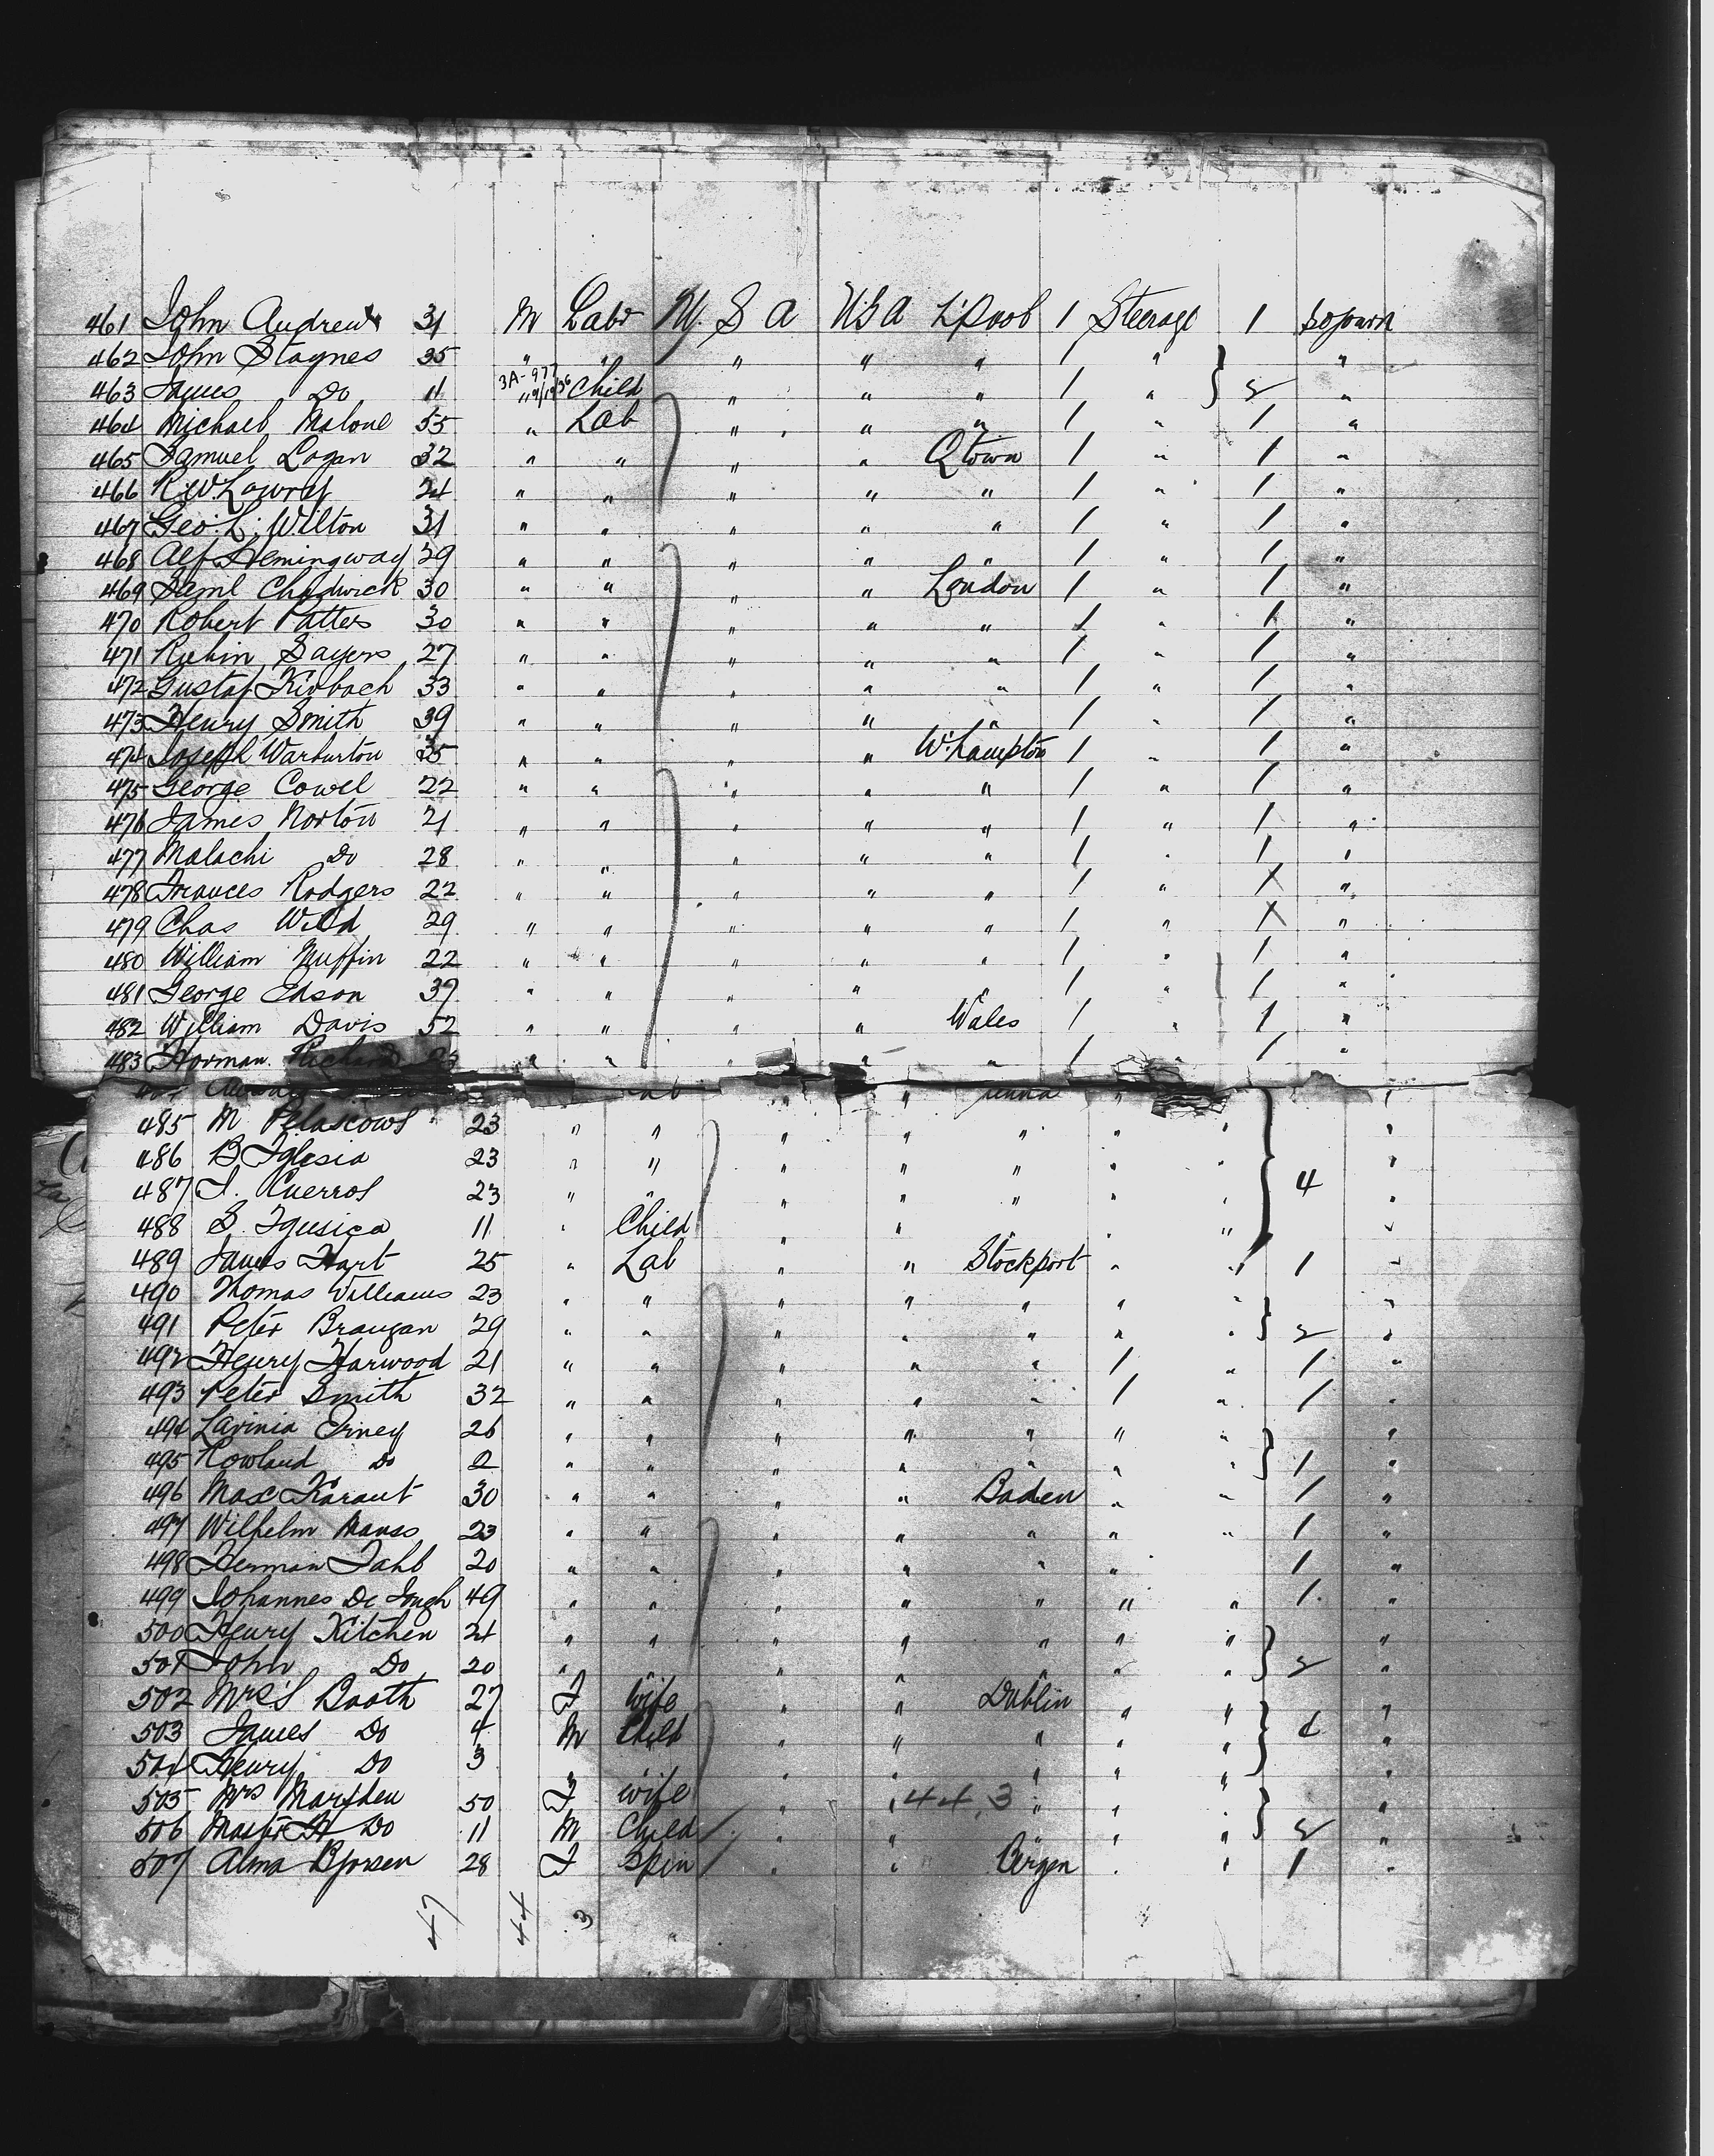 461 John Andrew 31 M Labr U. S A U.S A L'Pool 1 Steerage 1 Sojourn
462 John Staynes 35 " " " " " 1 " "
463 James Do 11 " 3A-977 Child " " " 1 " } 2 "
464 Michael Malone 55 " Lab " " " 1 " 1 "
465 Samuel Logan 32 " " " " Qtown 1 " 1 "
466 R.W. Lowrey 24 " " " " " 1 " 1 "
467 Geo. L. Wilton 31 " " " " " 1 " 1 "
468 Alf Hemingway 29 " " " " " 1 " 1 "
469 Saml Chadwick 30 " " " " London 1 " 1 "
470 Robert Patters 30 " " " " " 1 " 1 "
471 Rubin Sayers 27 " " " " " 1 " 1 "
472 Gustaf 33 " " " " " 1 " 1 "
473 Henry Smith 39 " " " " " 1 " 1 "
474 Joseph Warburton 35 " " " " W'hampton 1 " 1 "
475 George Cowel 22 " " " " " 1 " 1 "
476 James Norton 21 " " " " " 1 " 1 "
477 Malachi Do 28 " " " " " 1 " 1 "
478 Frances Rodgers 22 " " " " " 1 " 1 "
479 Chas Wild 29 " " " " " 1 " 1 "
480 William 22 " " " " " 1 " 1 "
481 George Edson 39 " " " " " 1 " 1 "
482 William Davis 52 " " " " Wales 1 " 1 "
483 Horman Richard 23 " " " " " 1 " 1 "
485 M Pelascows 23 " " " " " " " "
486 B Iglesia 23 " " " " " " " "
487 J. Cuerros 23 " " " " " " " } 4 "
488 S. Igusica 11 " Child " " " " "
489 James Hart 25 " Lab " " Stockport " 1 "
490 Thomas Williams 23 " " " " " " " "
491 Peter Braugan 29 " " " " " " " } 2 "
492 Henry Harwood 21 " " " " " 1 " 1 "
493 Peter Smith 32 " " " " " 1 " 1 "
494 Lavinia 26 " " " " " " " "
495 Rowland Do 2 " " " " " " " } 1 "
496 Max Karaut 30 " " " " Baden " " 1 "
497 Wilhelm 23 " " " " " " " 1 "
498 Herman Jahl 20 " " " " " " 1 "
499 Johannes De Jongh 49 " " " " " " " 1 "
500 Henry Kitchen 24 " " " " " " " "
501 John Do 20 " " " " " " " } 2 "
502 Mrs S Booth 27 F wife " " Dublin " " "
503 James Do 4 M Child " " " " " } "
504 Henry Do 3 " " " " " " " "
505 Mrs Marsden 50 F wife " " 44.3 " " " "
506 Master H Do 11 M Child " " " " " } 2 "
507 Alma Bjorsen 28 F Spin " " Bergen " " 1 "
47 44 3